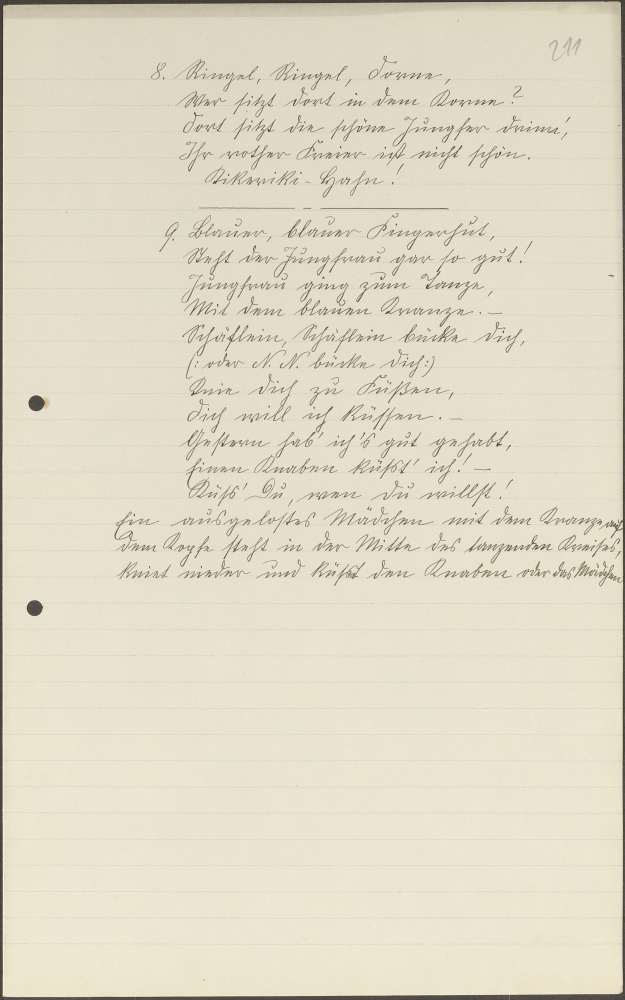 211
8. Ringel, Ringel, Dorne,
Wer sitzt dort in dem Korne?
Dort sitzt die schöne Jungfer drinn',
Ihr rother Freier ist nicht schön.
Kikeriki-Hahn!
9. Blauer, blauer Fingerhut,
Steht der Jungfrau gar so gut!
Jungfrau ging zum Tanze,
Mit dem blauen Kranze. –
Schäflein, Schäflein bücke dich,
(: oder N. N. bücke dich :)
Knie dich zu Füßen,
Dich will ich küssen. –
Gestern hab' ich's gut gehabt,
Einen Knaben küßt' ich! –
Küss' Du, wen du willst!
Ein ausgelostes Mädchen mit dem Kranze auf
dem Kopfe steht in der Mitte des tanzenden Kreises,
kniet nieder und küßt den Knaben oder das Mädchen